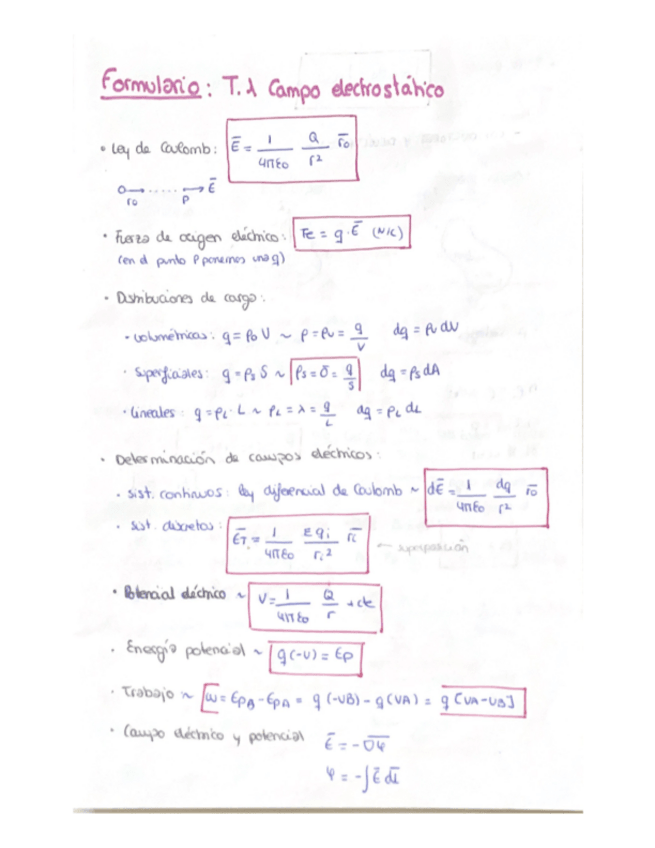 Formulario: T.1 Campo electrostático
• Ley de Coulomb: E̅ = 1/4πε0 Q/r² r̅0
r0 P E̅
• Fuerza de origen eléctrico: Fe = q·E̅ (N/C)
(en el punto P ponemos una q)
• Distribuciones de carga:
• Volumétricas: q = ρv V ~ ρ = ρv = q/V dq = ρv dV
• Superficiales: q = ρs S ~ ρs = σ = q/S dq = ρs dA
• Lineales: q = ρL · L ~ ρL = λ = q/L dq = ρL dL
• Determinación de campos eléctricos:
• sist. continuos: ley diferencial de Coulomb ~ dE̅ = 1/4πε0 dq/r² r̅0
• sist. discretos: E̅T = 1/4πε0 Σqi/ri² r̅i ← superposición
• Potencial eléctrico ~ V = 1/4πε0 Q/r + cte
• Energía potencial ~ q(-V) = Ep
• Trabajo ~ ω = EpB - EpA = q(-VB) - q(VA) = q[VA-VB]
• Campo eléctrico y potencial E̅ = -∇φ
φ = -∫E̅ dl̅